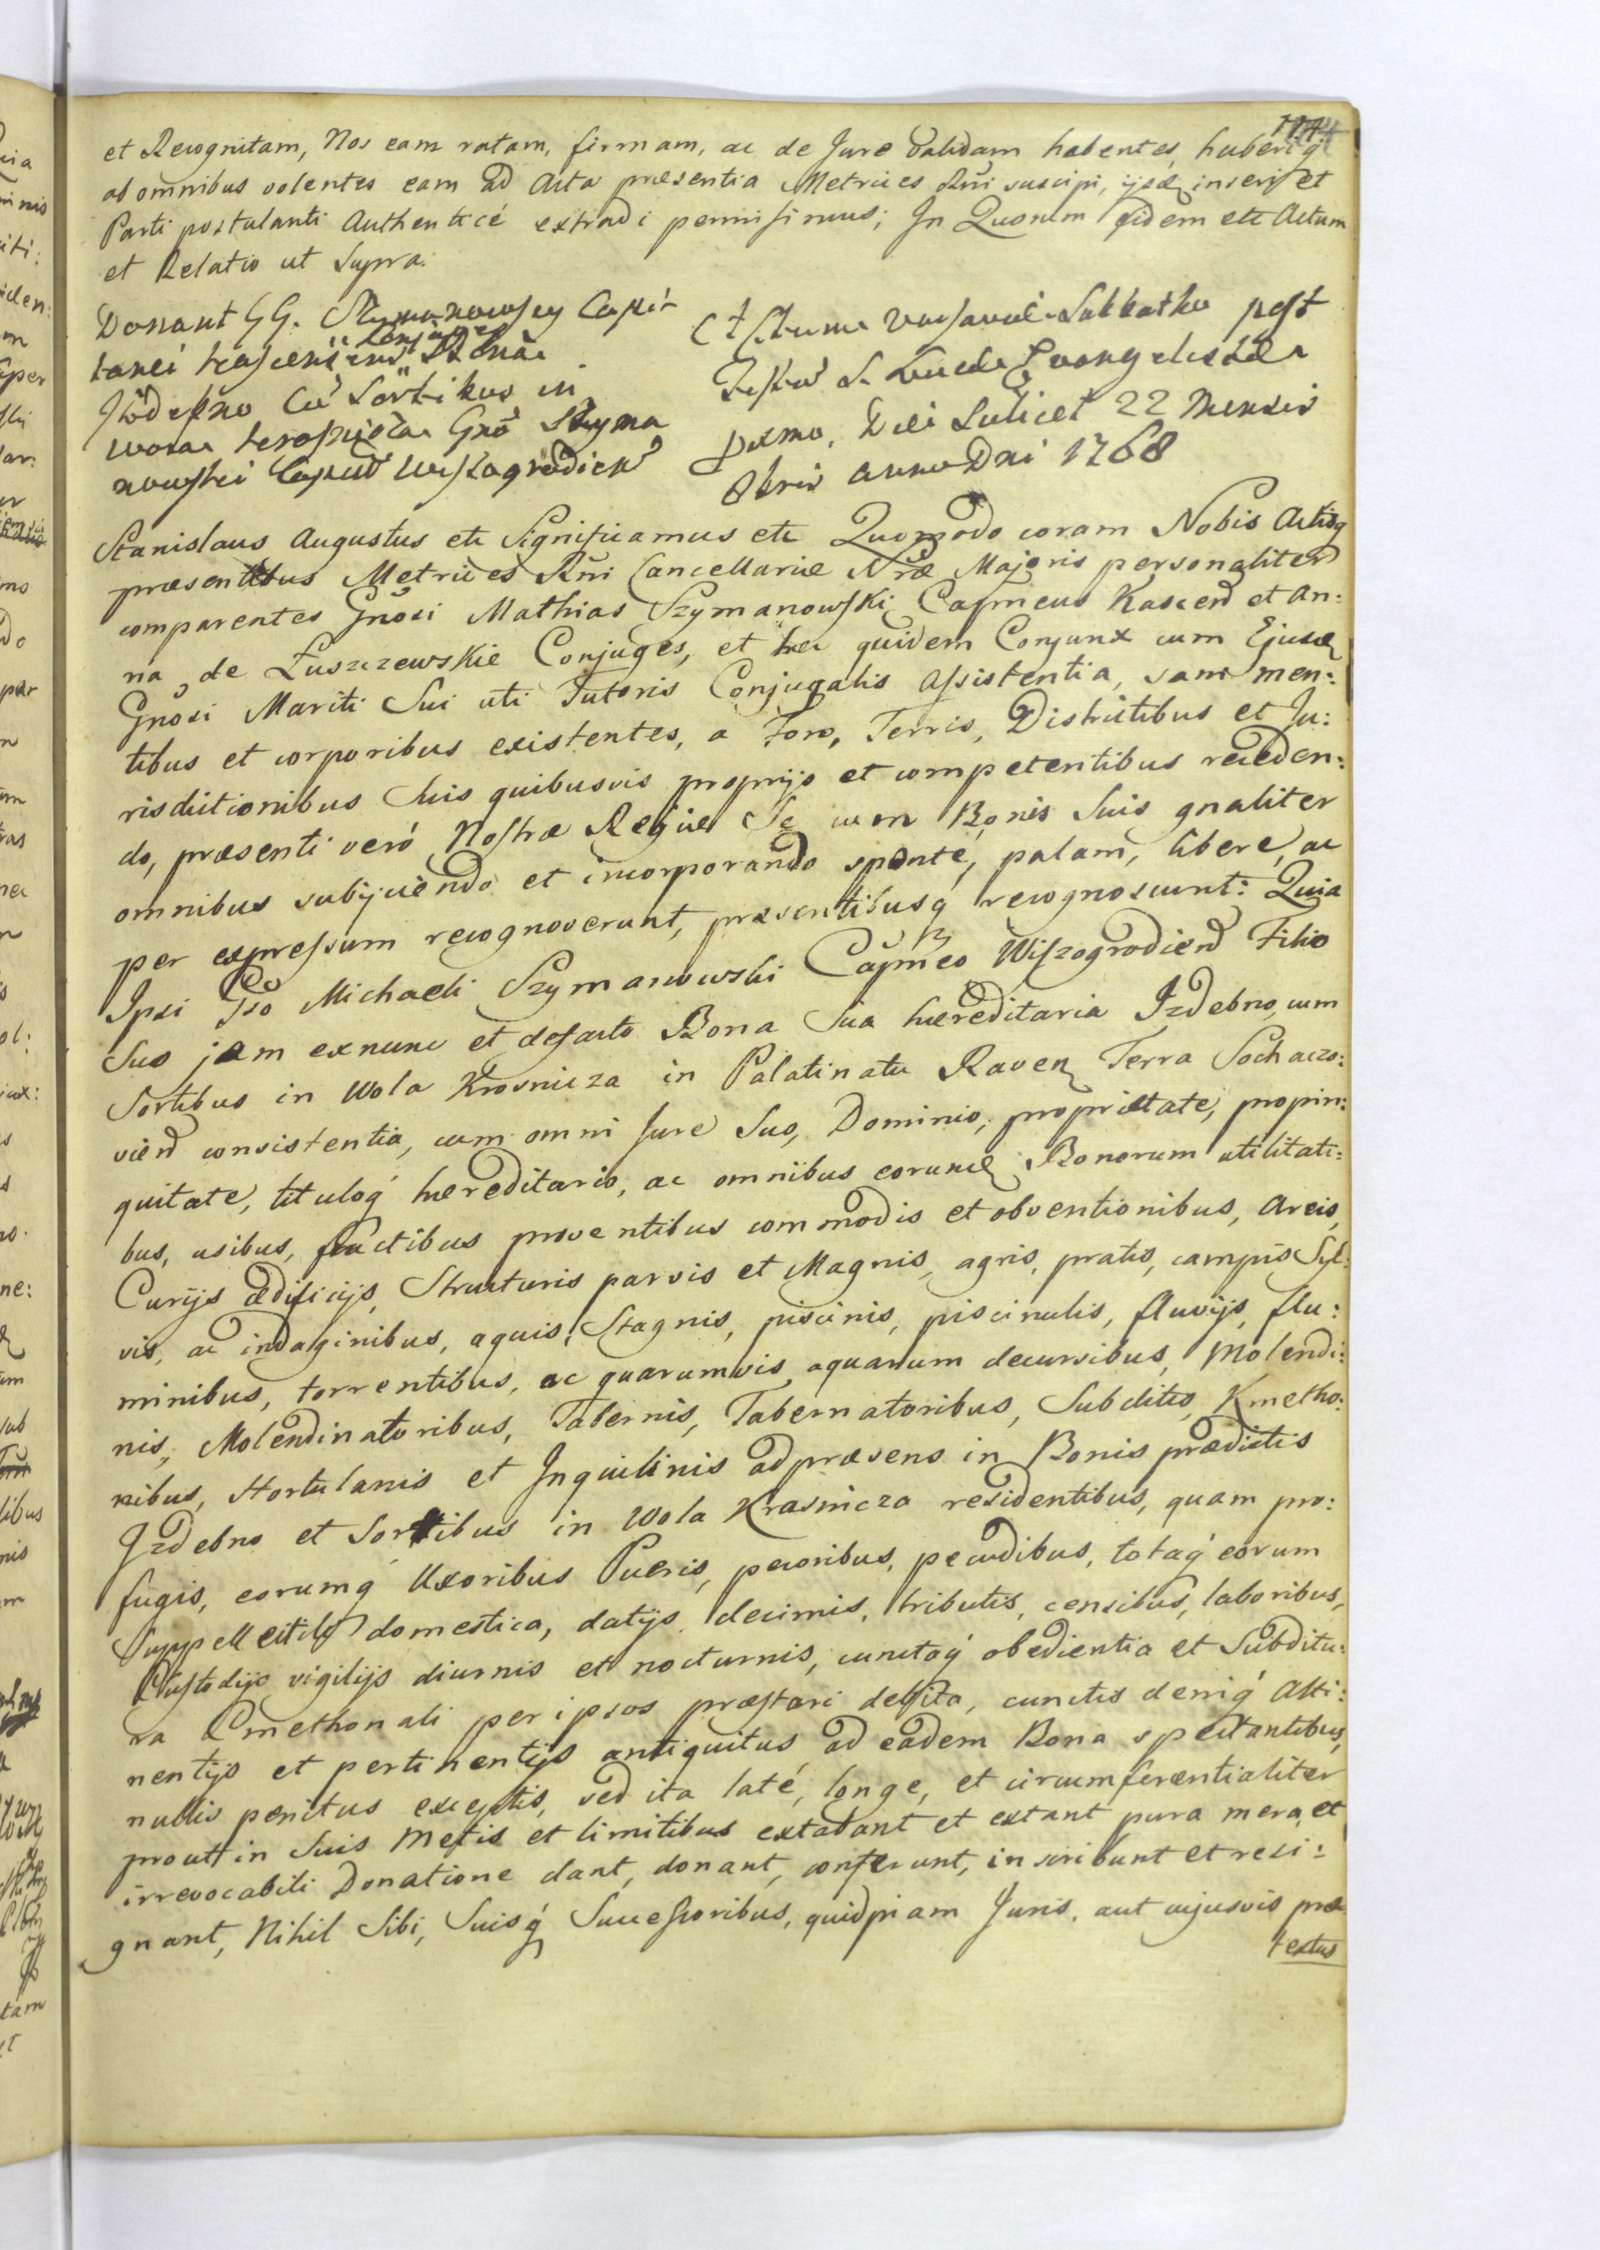 et Recognitam, Nos eam ratam, firmam, ac de Jure validam habentes, haberiq́
ab omnibus volentes eam ad Acta præsentia Metrices Rñi suscipi, ijsdē inseri et
Parti postulanti Authenticé extradi permisimus; In Quorum fidem etc Actum
et Relatio ut Supra.
Donant GG. Szymanowscy Capi-
tanei Conjuges
Izdebno Cū Sortibus in
Wola Gnō Szyma
nowski Wiszogrodien
Actum Varsaviæ Sabbatho post
Festū S. Lucæ Evangelistæ
pxmo, Diei Scilicet 22 Mensis
8bris Anno Dni 1768
Stanislaus Augustus etc Significamus etc Quomodo coram Nobis Actisq
præsentibus Metrices Rñi Cancellariæ Nræ Majoris personaliter
comparentes Gnosi Mathias Szymanowski Capneus Kascen et An:
na de Łuszczewskie Conjuges, et hæc quidem Conjunx cum Ejusdē
Gnosi Mariti Sui uti Tutoris Conjugalis Assistentia, sani men:
tibus et corporibus existentes, a Foro, Terris, Districtibus et Ju:
risdictionibus Suis quibusvis proprijs et competentibus receden:
do, præsenti veró Nostræ Regiæ Se cum Bonis Suis gnaliter
omnibus subijciendo et incorporando sponté, palam, libere, ac
per expressum recognoverunt, præsentibusq́ recognoscunt: Quia
Ipsi Gso Michaeli Szymanowski Capneo Wiszogrodien Filio
Suo jam exnunc et defacto Bona Sua hæreditaria Izdebno, cum
Sortibus in Wola Krosnicza in Palatinatu Raven Terra Sochaczo:
vien consistentia, cum omni Jure Suo, Dominio, proprietate, propin:
quitate, tituloq́ hæreditario, ac omnibus eorundē Bonorum utilitati:
bus, usibus, fructibus proventibus commodis et obventionibus, Areis,
Curijs ædificijs, Structuris parvis et Magnis, agris, pratis, campis Syl:
vis, ac indaginibus, aquis, Stagnis, piscinis, piscinulis, fluvijs, flu:
minibus, torrentibus, ac quarumvis aquarum decursibus, Molendi:
nis, Molendinatoribus, Tabernis, Tabernatoribus, Subditis, Kmetho:
nibus, Hortulanis et Inquilinis ad præsens in Bonis prædictis
Izdebno et Sortibus in Wola Krasnicza residentibus, quam pro:
fugis, eorumq́ Uxoribus Pueris, pecoribus, pecudibus, totaq́ eorum
Suppellectile domestica, datijs, decimis, tributis, censibus, laboribus,
Custodijs vigilijs diurnis et nocturnis, cunctaq́ obedientia et Subditu:
ra Cmethonali per ipsos præstari debita, cunctis deniq́ Atti:
nentijs et pertinentijs antiquitus ad eadem Bona spectantibus,
nullis penitus exceptis, sed ita laté, longe, et circumferentialiter
prout in Suis Metis et limitibus extabant et extant pura mera et
irrevocabili Donatione dant, donant, conferunt, inscribunt et resi:
gnant, Nihil Sibi, Suisq́ Successoribus, quidpiam Juris, aut cujusvis præ
textus